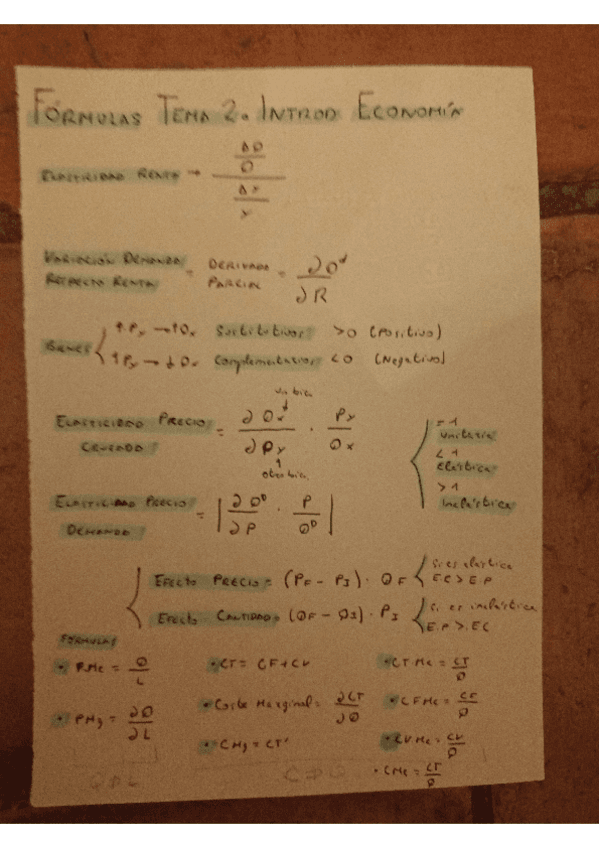 FÓRMULAS TEMA 2. INTROD ECONOMÍA
ELASTICIDAD RENTA → (ΔQ/Q) / (ΔY/Y)
VARIACIÓN DEMANDA RESPECTO RENTA = DERIVADA PARCIAL = ∂Qᵈ/∂R
BIENES { ↑Py → ↑Qx Sustitutivos: >0 (Positivo)
↑Py → ↓Qx Complementarios <0 (Negativo)
un bien
ELASTICIDAD PRECIO CRUZADA: = ∂Qx/∂Py · Py/Qx
otro bien
{ = 1
Unitaria
< 1
Elástica
> 1
Inelástica
ELASTICIDAD PRECIO DEMANDA: = |∂Qᴰ/∂P · P/Qᴰ|
EFECTO PRECIO = (PF - PI) · QF { Si es elástica E.C > E.P
EFECTO CANTIDAD = (QF - QI) · PI { Si es inelástica E.P > EC
FÓRMULAS
• PMe = Q/L
• PMg = ∂Q/∂L
• CT = CF + CV
• Coste Marginal = ∂CT/∂Q
• CMg = CT'
• CTMe = CT/Q
• CFMe = CF/Q
• CVMe = CV/Q
• CMe = CT/Q